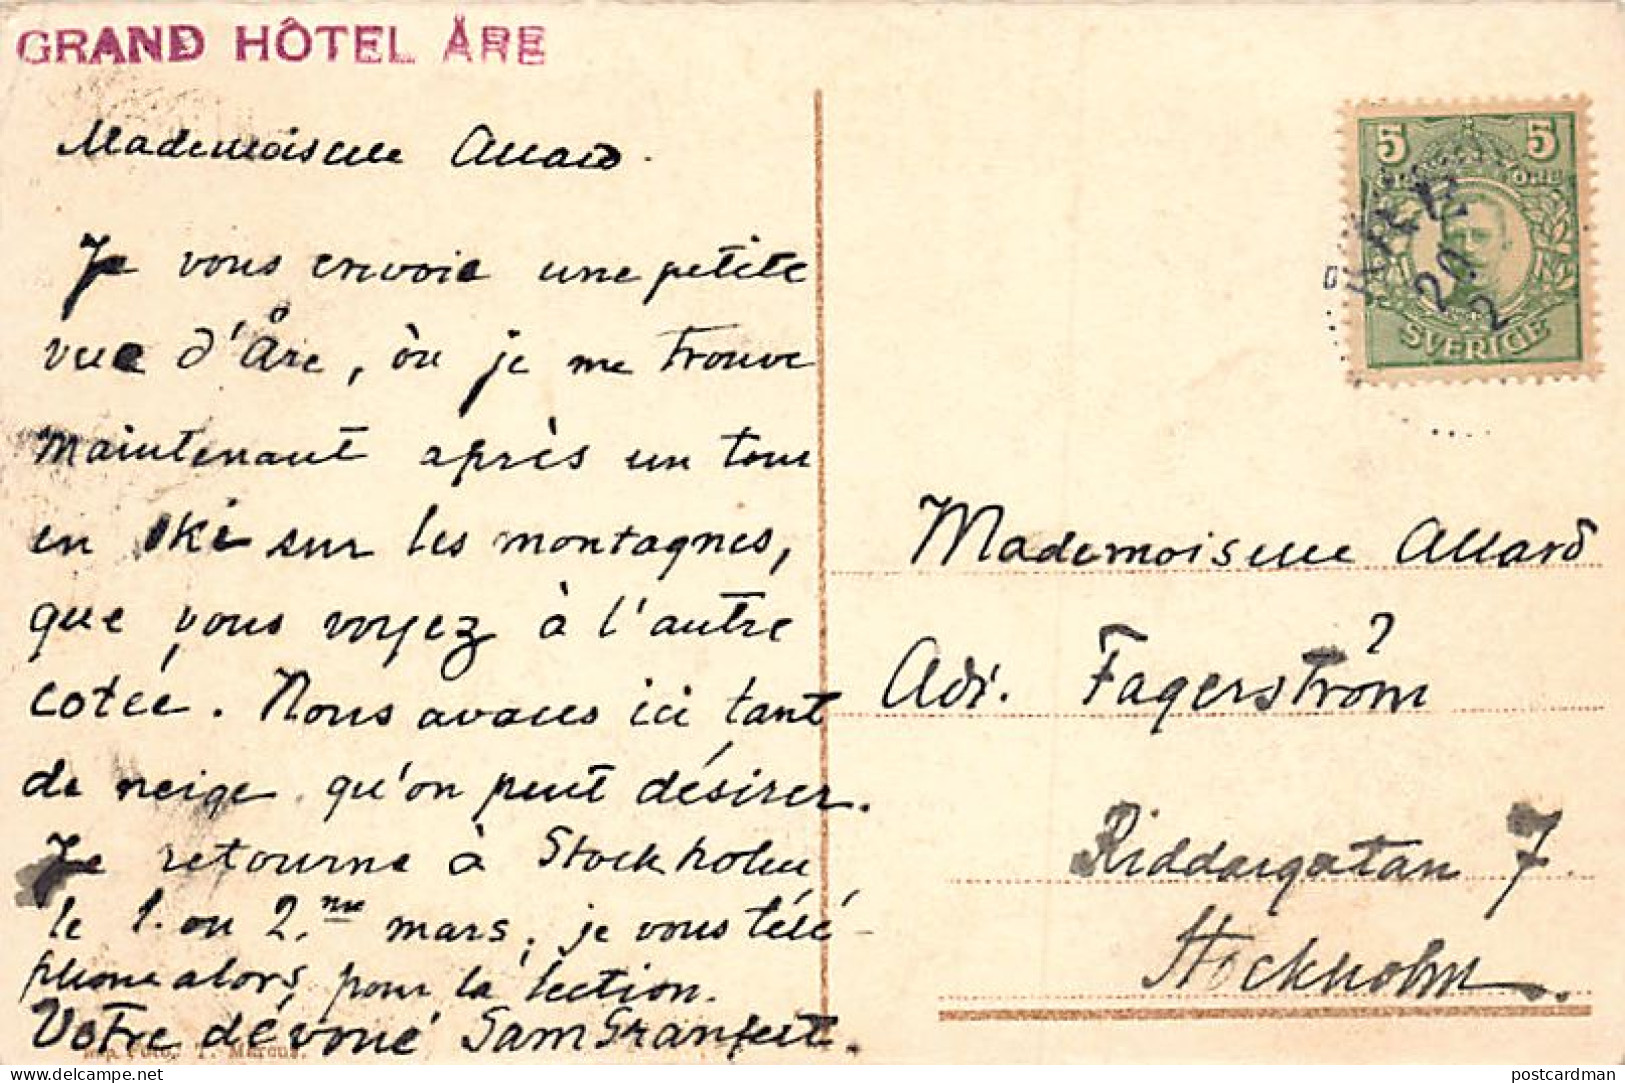 GRAND HÔTEL ÅRE
Mademoiselle Allard.
Je vous envoie une petite
vue d'Åre, òu je me trouve
maintenant après un tour
en ski sur les montagnes,
que vous voyez à l'autre
cotée. Nous avons ici tant
de neige qu'on peut désirer.
Je retourne à Stockholm
le 1. ou 2. me mars, je vous télé
phone alors, pour la lection.
Votre dévoué Sam
5 5
ÖRE
SVERIGE
ÅRE
20
2
Mademoiselle Allard
Adr. Fagerström
Riddargatan 7.
Stockholm.
Marcus.
postcardman